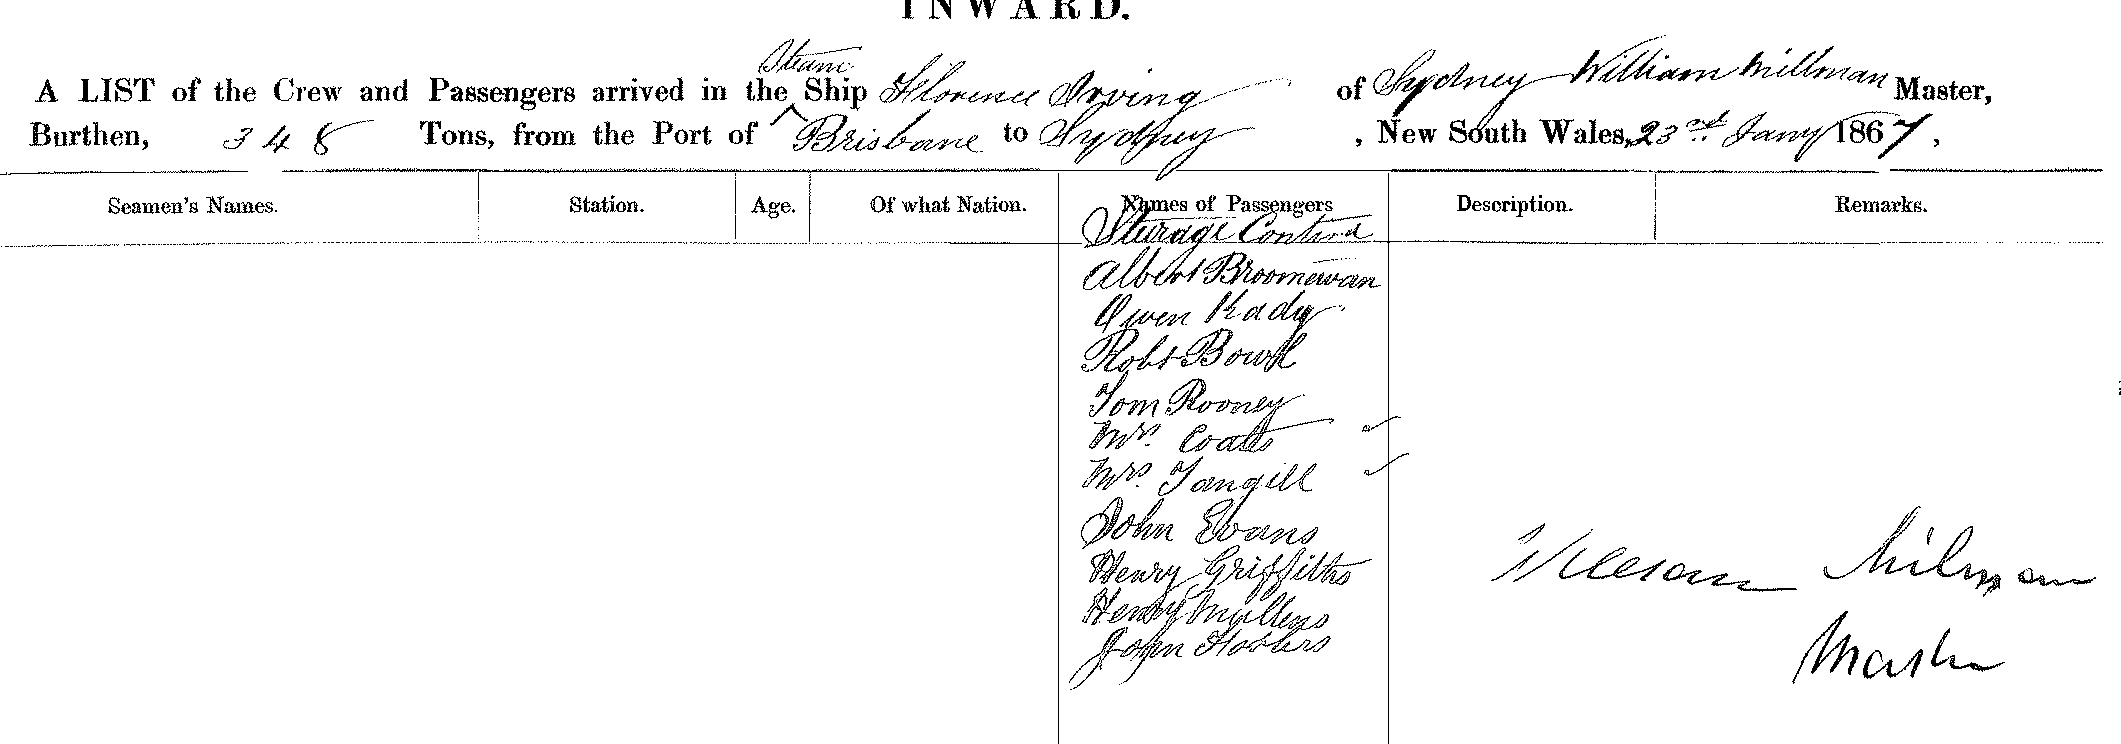 INWARD.
Steam
A LIST of the Crew and Passengers arrived in the Ship Florence Irving of Sydney William Millman Master,
Burthen, 348 Tons, from the Port of Brisbane to Sydney, New South Wales, 23rd Jany 1867,
Seamen's Names. Station. Age. Of what Nation. Names of Passengers Description. Remarks.
Sturage Contind
Albert Broomewan
Owen Kady
Robt
Tom Rooney
Mrs. Coats
Mrs. Tangill
John Evans
Henry Griffiths
Henry Mullens
John
William Milman
Master